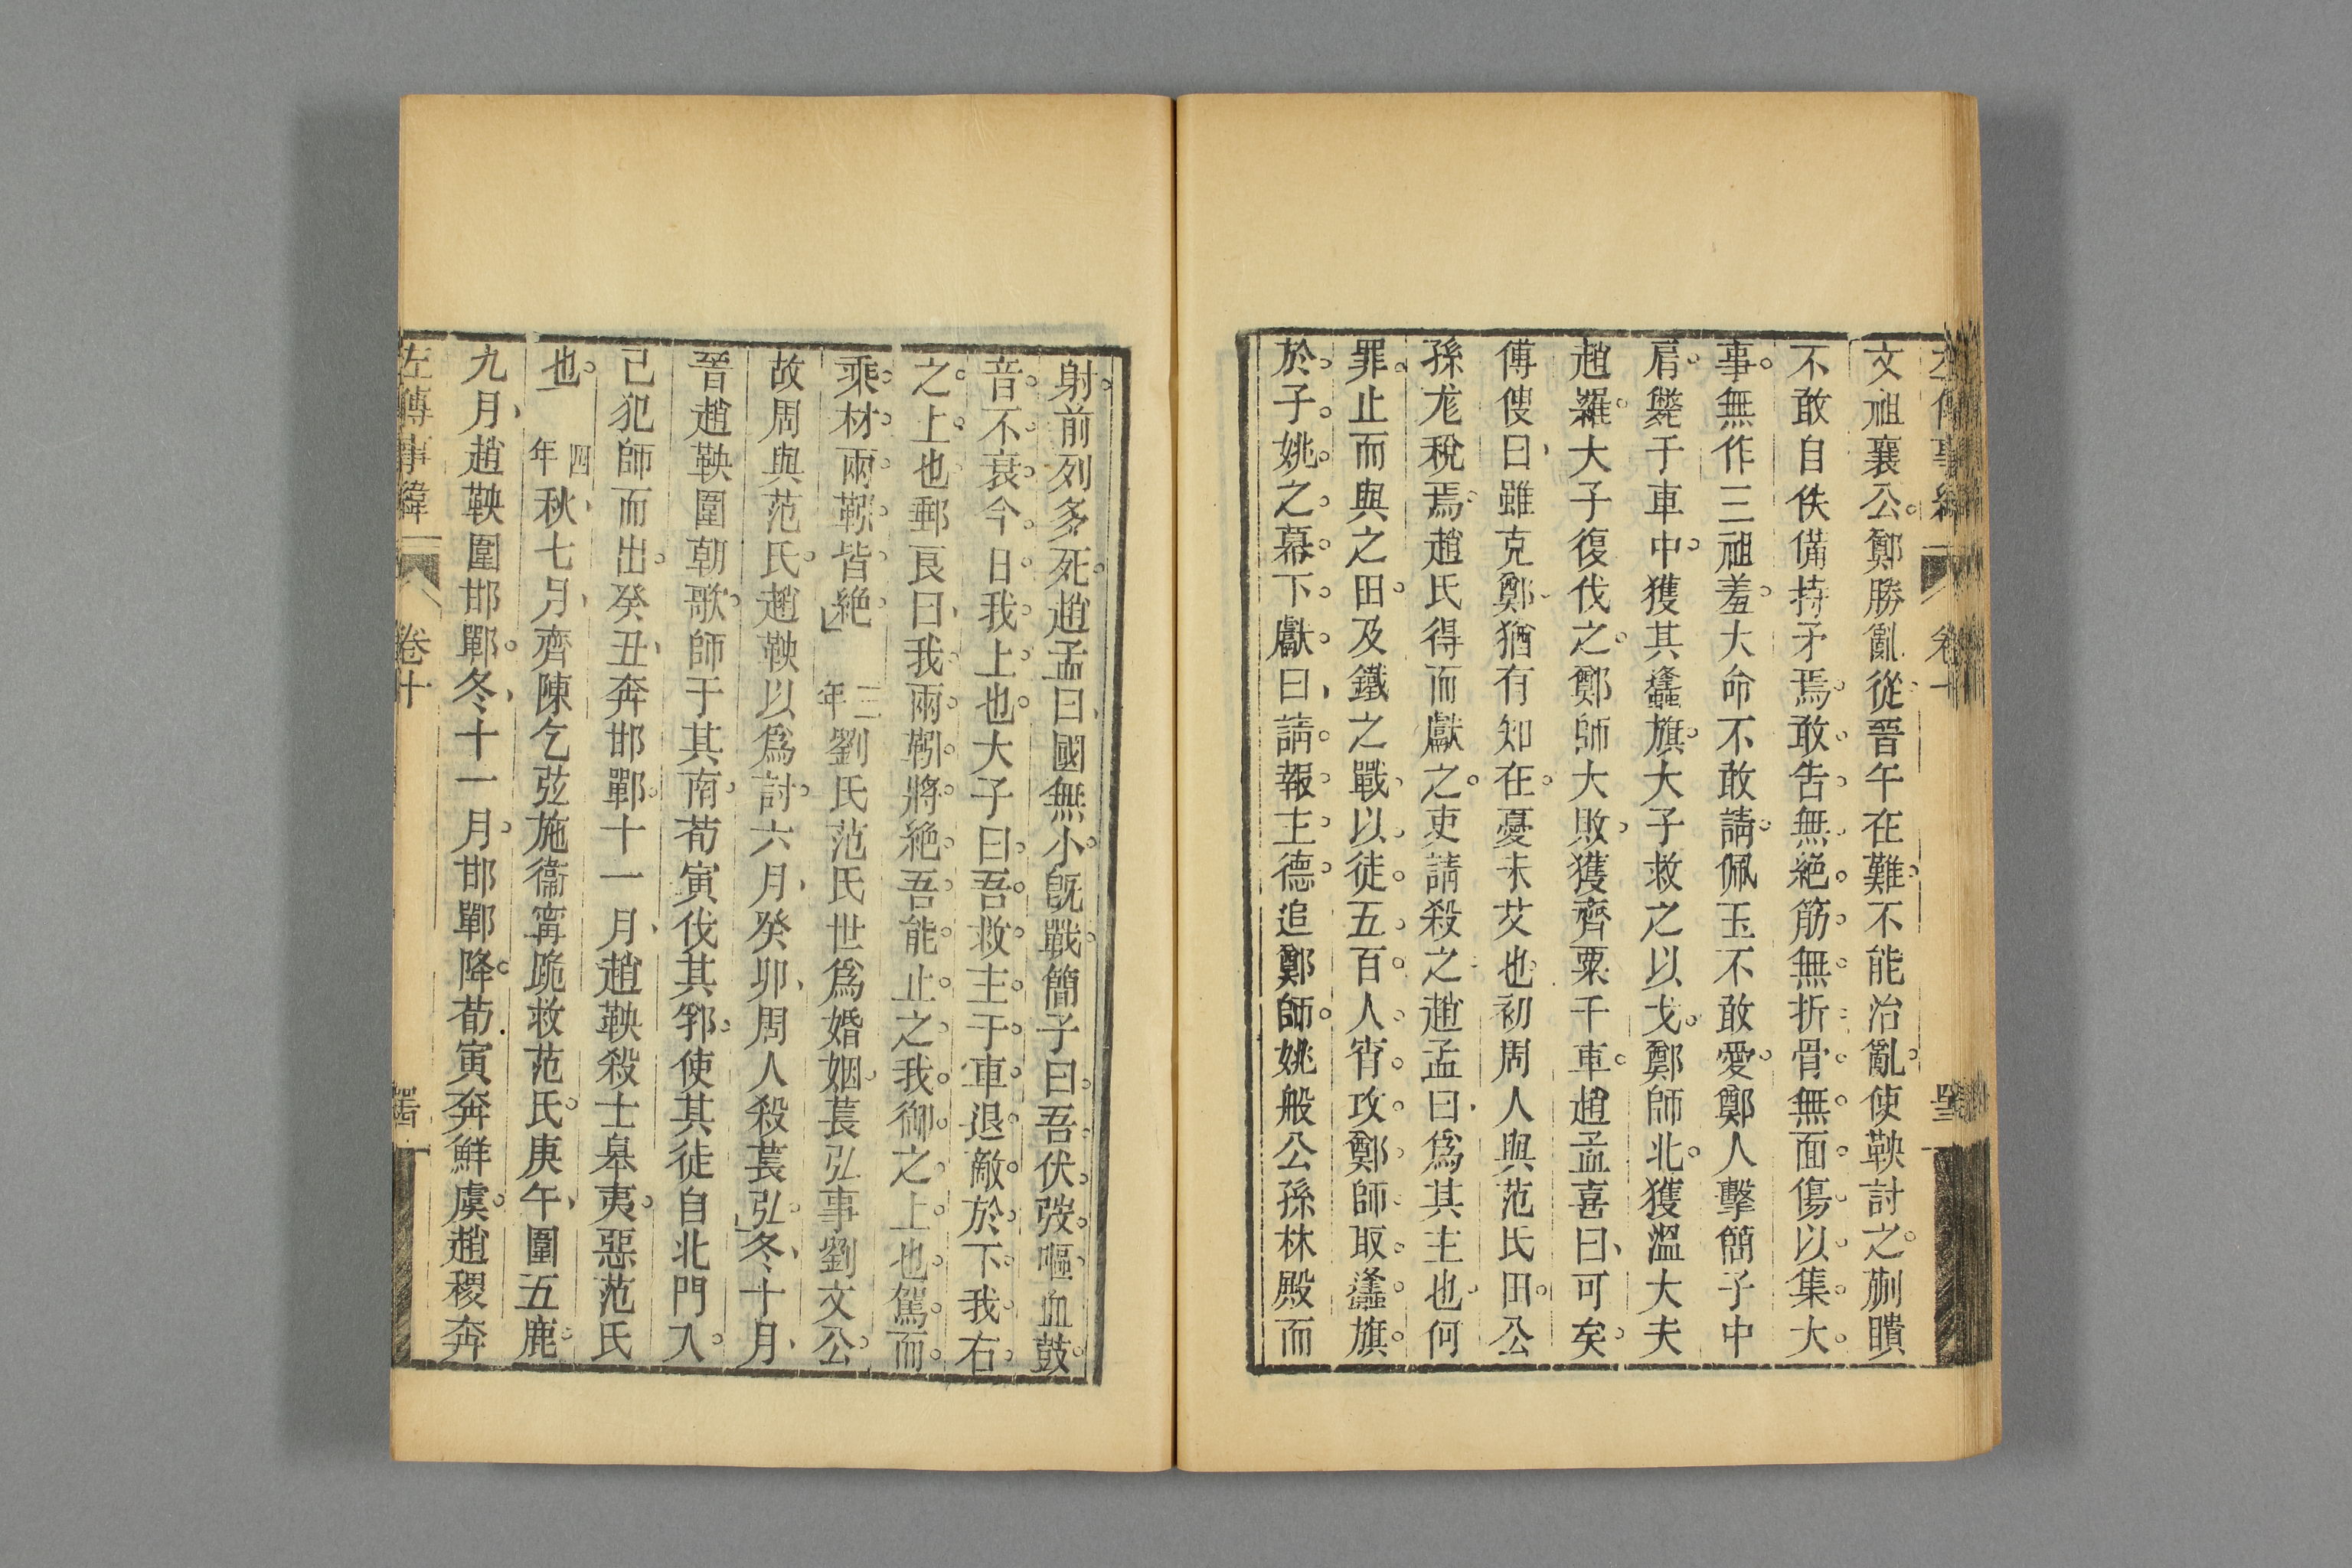 文祖襄公鄭勝亂從晉午在難不能治亂使鞅討之蒯聵
不敢自佚備持矛焉敢告無絕筋無折骨無面傷以集大
事無作三祖羞大命不敢請佩玉不敢愛鄭人擊簡子中
肩斃于車中獲其蠭旗大子救之以戈鄭師北獲溫大夫
趙羅大子復伐之鄭師大敗獲齊粟千車趙孟喜曰可矣
傅傁曰雖克鄭猶有知在憂未艾也初周人與范氏田公
孫尨稅焉趙氏得而獻之吏請殺之趙孟曰爲其主也何
罪止而與之田及鐵之戰以徒五百人宵攻鄭師取蠭旗
於子姚之幕下獻曰請報主德追鄭師姚般公孫林殿而
射前列多死趙孟曰國無小旣戰簡子曰吾伏弢嘔血鼓
音不衰今日我上也大子曰吾救主于車退敵於下我右
之上也郵良曰我兩靷將絕吾能止之我御之上也駕而
乘材兩靷皆絕 三年 劉氏范氏世爲婚姻萇弘事劉文公
故周與范氏趙鞅以爲討六月癸卯周人殺萇弘冬十月
晉趙鞅圍朝歌師于其南荀寅伐其郛使其徒自北門入
己犯師而出癸丑奔邯鄲十一月趙鞅殺士皋夷惡范氏
也 四年 秋七月齊陳乞弦施衞甯跪救范氏庚午圍五鹿
九月趙鞅圍邯鄲冬十一月邯鄲降荀寅奔鮮虞趙稷奔
左傳事緯 卷十